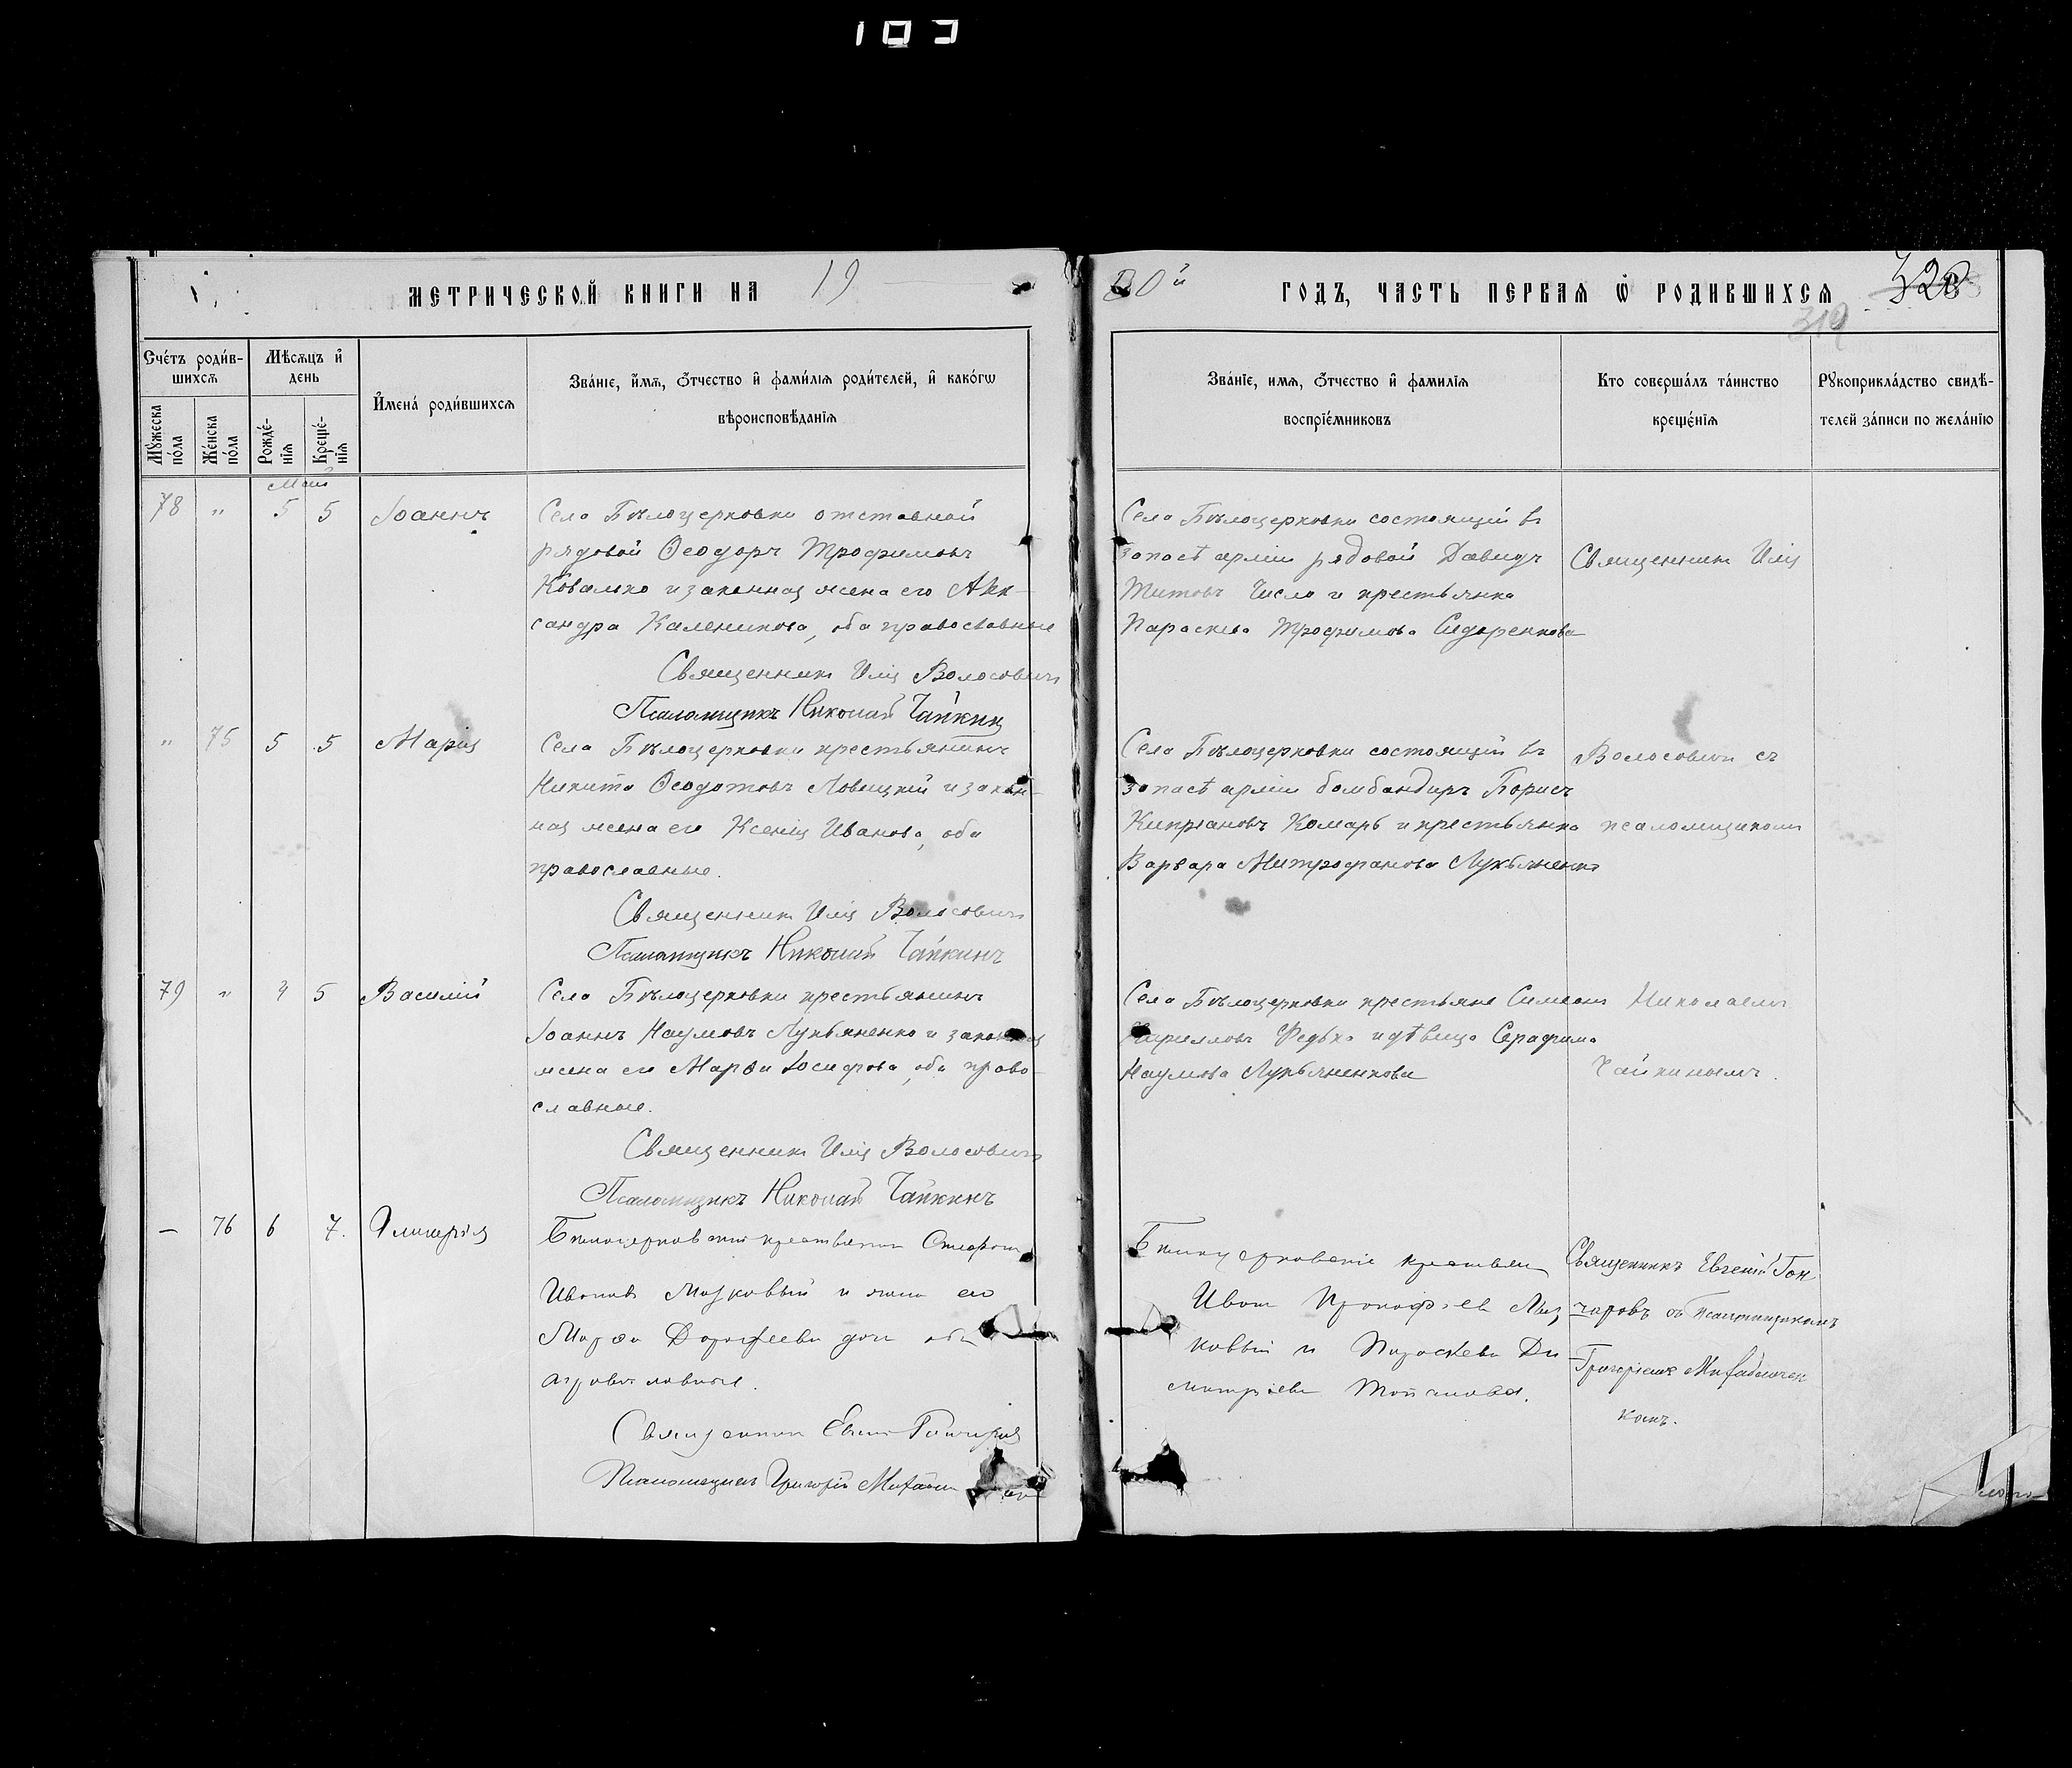 103
МЕТРИЧЕСКОЙ КНИГИ НА 19
00й ГОДЪ, ЧАСТЬ ПЕРВАѦ Ѿ РОДИВШИХСѦ 320
319
Счéтъ роди́вшихсѧ
Мѣсѧцъ и҆ день
И҆мена́ роди́вшихсѧ
Зва́нїе, и҆́мѧ, ѻ҆́тчество и҆ фами́лїѧ роди́телей, и҆ како́гѡ
вѣроисповѣ́данїѧ
Мꙋ́жеска по́ла
Же́нска по́ла
Рожде́нїѧ
Креще́нїѧ
Зва́нїе, имѧ, ѻ҆́тчество и҆ фами́лїѧ
воспрїе́мниковъ
Кто соверша́лъ та́инство
креще́нїѧ
Рꙋкоприкла́дство свидѣ́-
телей за́писи по жела́нїю
Май
78 " 5 5 Іоаннъ
Села Бѣлоцерковки отставной
рядовой Ѳеодоръ Трофимовъ
Ковалько и законная жена его Алек-
сандра Каленикова, оба православные
Священникъ Илія Волосовичъ
Псаломщикъ Николай Чайкинъ
Села Бѣлоцерковки состоящій въ
запасѣ арміи рядовой Давидъ
Титовъ Число и крестьянка
Параскева Трофимова Сидоренкова
Священникъ Илія
" 75 5 5 Марія
Села Бѣлоцерковки крестьянинъ
Никита Ѳеодотовъ Ловицкій и закон-
ная жена его Ксенія Иванова, оба
православные.
Священникъ Илія Волосовичъ
Псаломщикъ Николай Чайкинъ
Села Бѣлоцерковки состоящій въ
запасѣ арміи бомбандиръ Борисъ
Кипріановъ Комарь и крестьянка
Варвара Митрофанова Лукьяненко
Волосовичъ съ
псаломщикомъ
79 " 4 5 Василій
Села Бѣлоцерковки крестьянинъ
Іоаннъ Наумовъ Лукьяненко и законная
жена его Марѳа Іосифова, оба право-
славные.
Священникъ Илія Волосовичъ
Псаломщикъ Николай Чайкинъ
Села Бѣлоцерковки крестьяне Симеонъ
Кирилловъ Федько и дѣвица Серафима
Наумова Лукьяненкова
Николаемъ
Чайкинымъ.
— 76 6 7. Гликерія
Бѣлоцерковскій крестьянин Стефан
Иванов Мазковый и жена его
Марѳа Дорофеева оба
православные.
Священник Евгений Гончаров
Псаломщикъ Григорій
Бѣлоцерковскіе крестьян
Иван Прокофіев Маз
ковый и Параскева Ди
митріева
Священникъ Евгеній Гон
чаровъ съ Псаломщикомъ
Григоріемъ Михайличен
комъ.